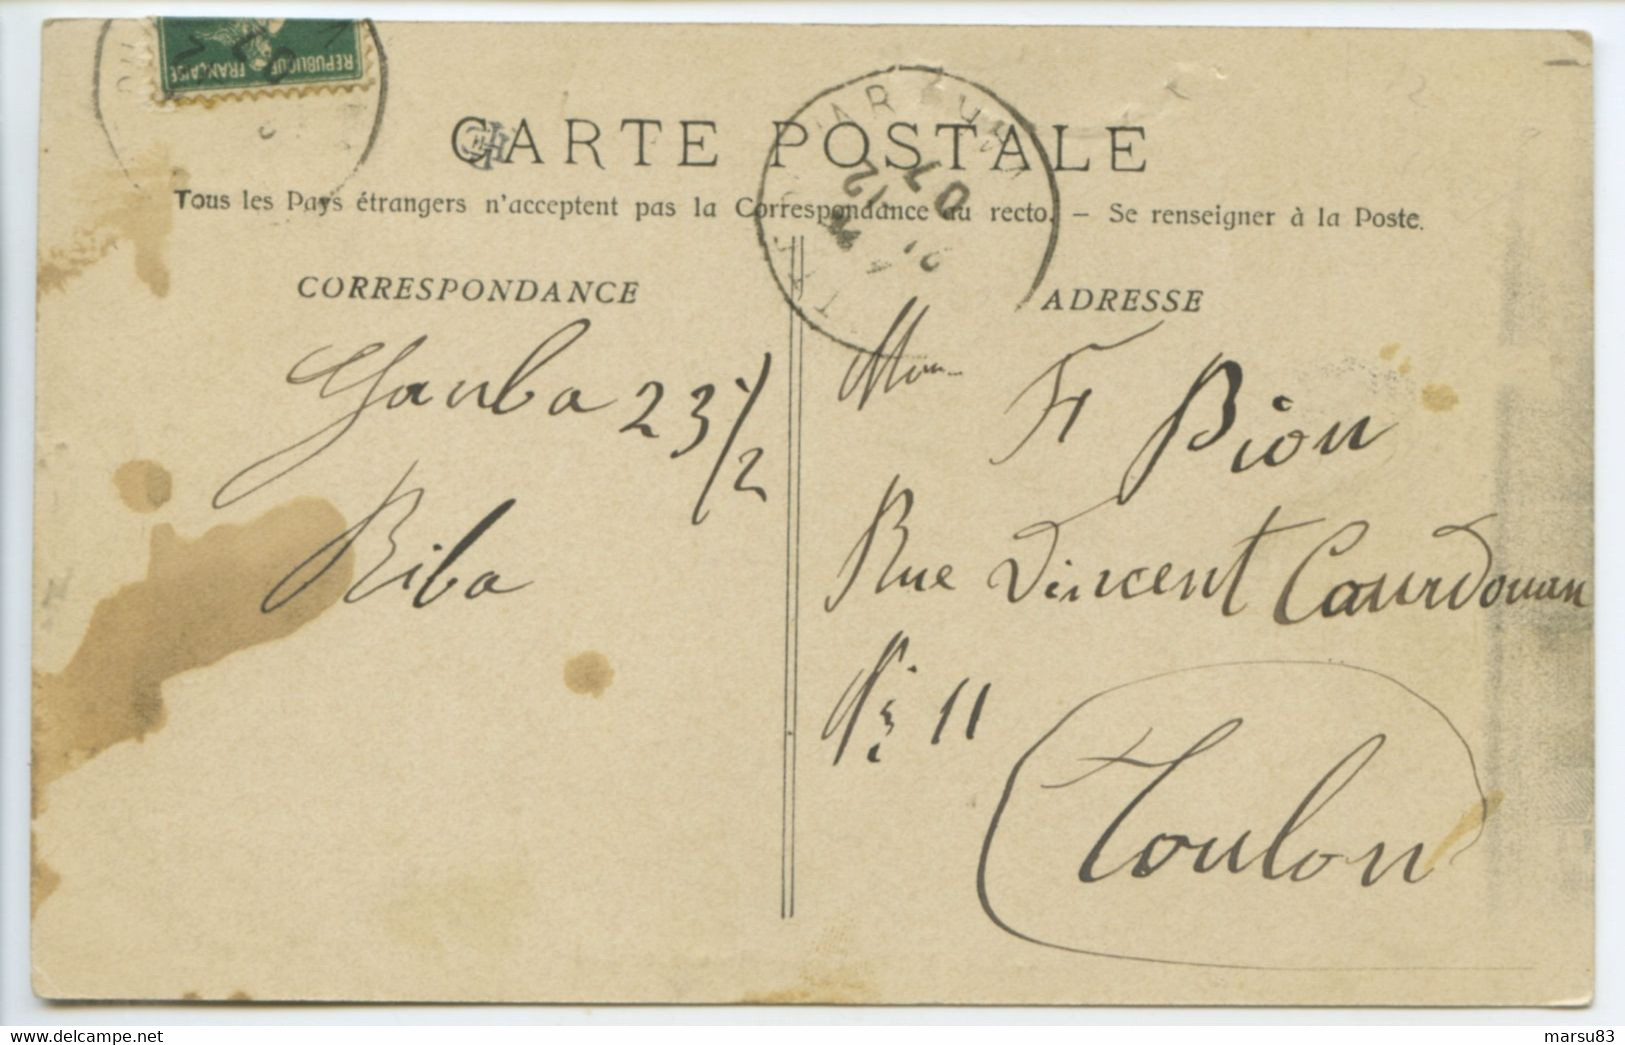 REPUBLIQUE FRANÇAISE
CARTE POSTALE
Tous les Pays étrangers n'acceptent pas la Correspondance au recto. – Se renseigner à la Poste.
CORRESPONDANCE
23/2
Riba
ADRESSE
Fr Bion
Rue Vincent Courdouan
11
Toulon
12
07
marsu83